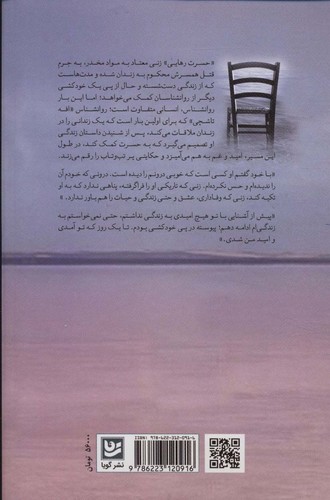 «حسرت رهایی» زنی معتاد به مواد مخدر، به جرم
قتل همسرش محکوم به زندان شده و مدت‌هاست
که از زندگی دست‌شسته و حال از پی یک خودکشی
دیگر از روانشناسان کمک می‌خواهد؛ اما این بار
روانشناس، انسانی متفاوت است؛ روانشناس «افه
تاشچی» که برای اولین بار است که یک زندانی را در
زندان ملاقات می‌کند، پس از شنیدن داستان زندگی
او تصمیم می‌گیرد که به حسرت کمک کند، در طول
این مسیر، امید و غم به هم می‌آمیزد و حکایتی پر تب‌وتاب را رقم می‌زند.
«با خود گفتم او کسی است که خوبی درونم را دیده است، درونی که خودم آن
را ندیده‌ام و حس نکرده‌ام. زنی که تاریکی او را فراگرفته، پناهی ندارد که به او
تکیه کند، زنی که وفاداری، عشق و حتی زندگی و حیات را هم باور ندارد.»
«پیش از آشنایی با تو هیچ امیدی به زندگی نداشتم، حتی نمی‌خواستم به
زندگی‌ام ادامه دهم؛ پیوسته در پی خودکشی بودم. تا یک روز که تو آمدی
و امید من شدی.»
۵۶۰۰۰ تومان
نشر گویا
ISBN: 978-622-312-091-6
9 786223 120916